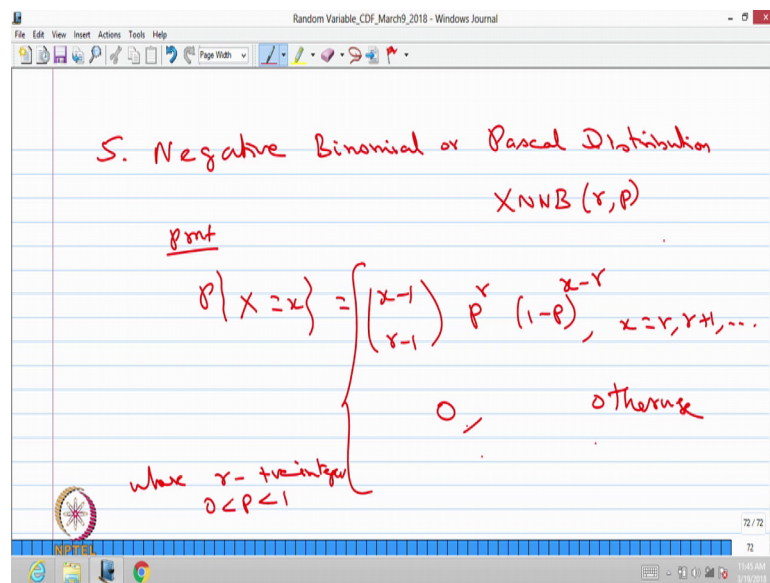 Random Variable_CDF_March9_2018 - Windows Journal
File Edit View Insert Actions Tools Help
Page Width
5. Negative Binomial or Pascal Distribution
X ~ NB (r, p)
pmf
P{X = x} = { (x-1 r-1) p^r (1-p)^{x-r}, x = r, r+1, ...
0, otherwise
where r - +ve integer
0 < p < 1
NPTEL
72 / 72
72
11:45 AM
3/19/2018